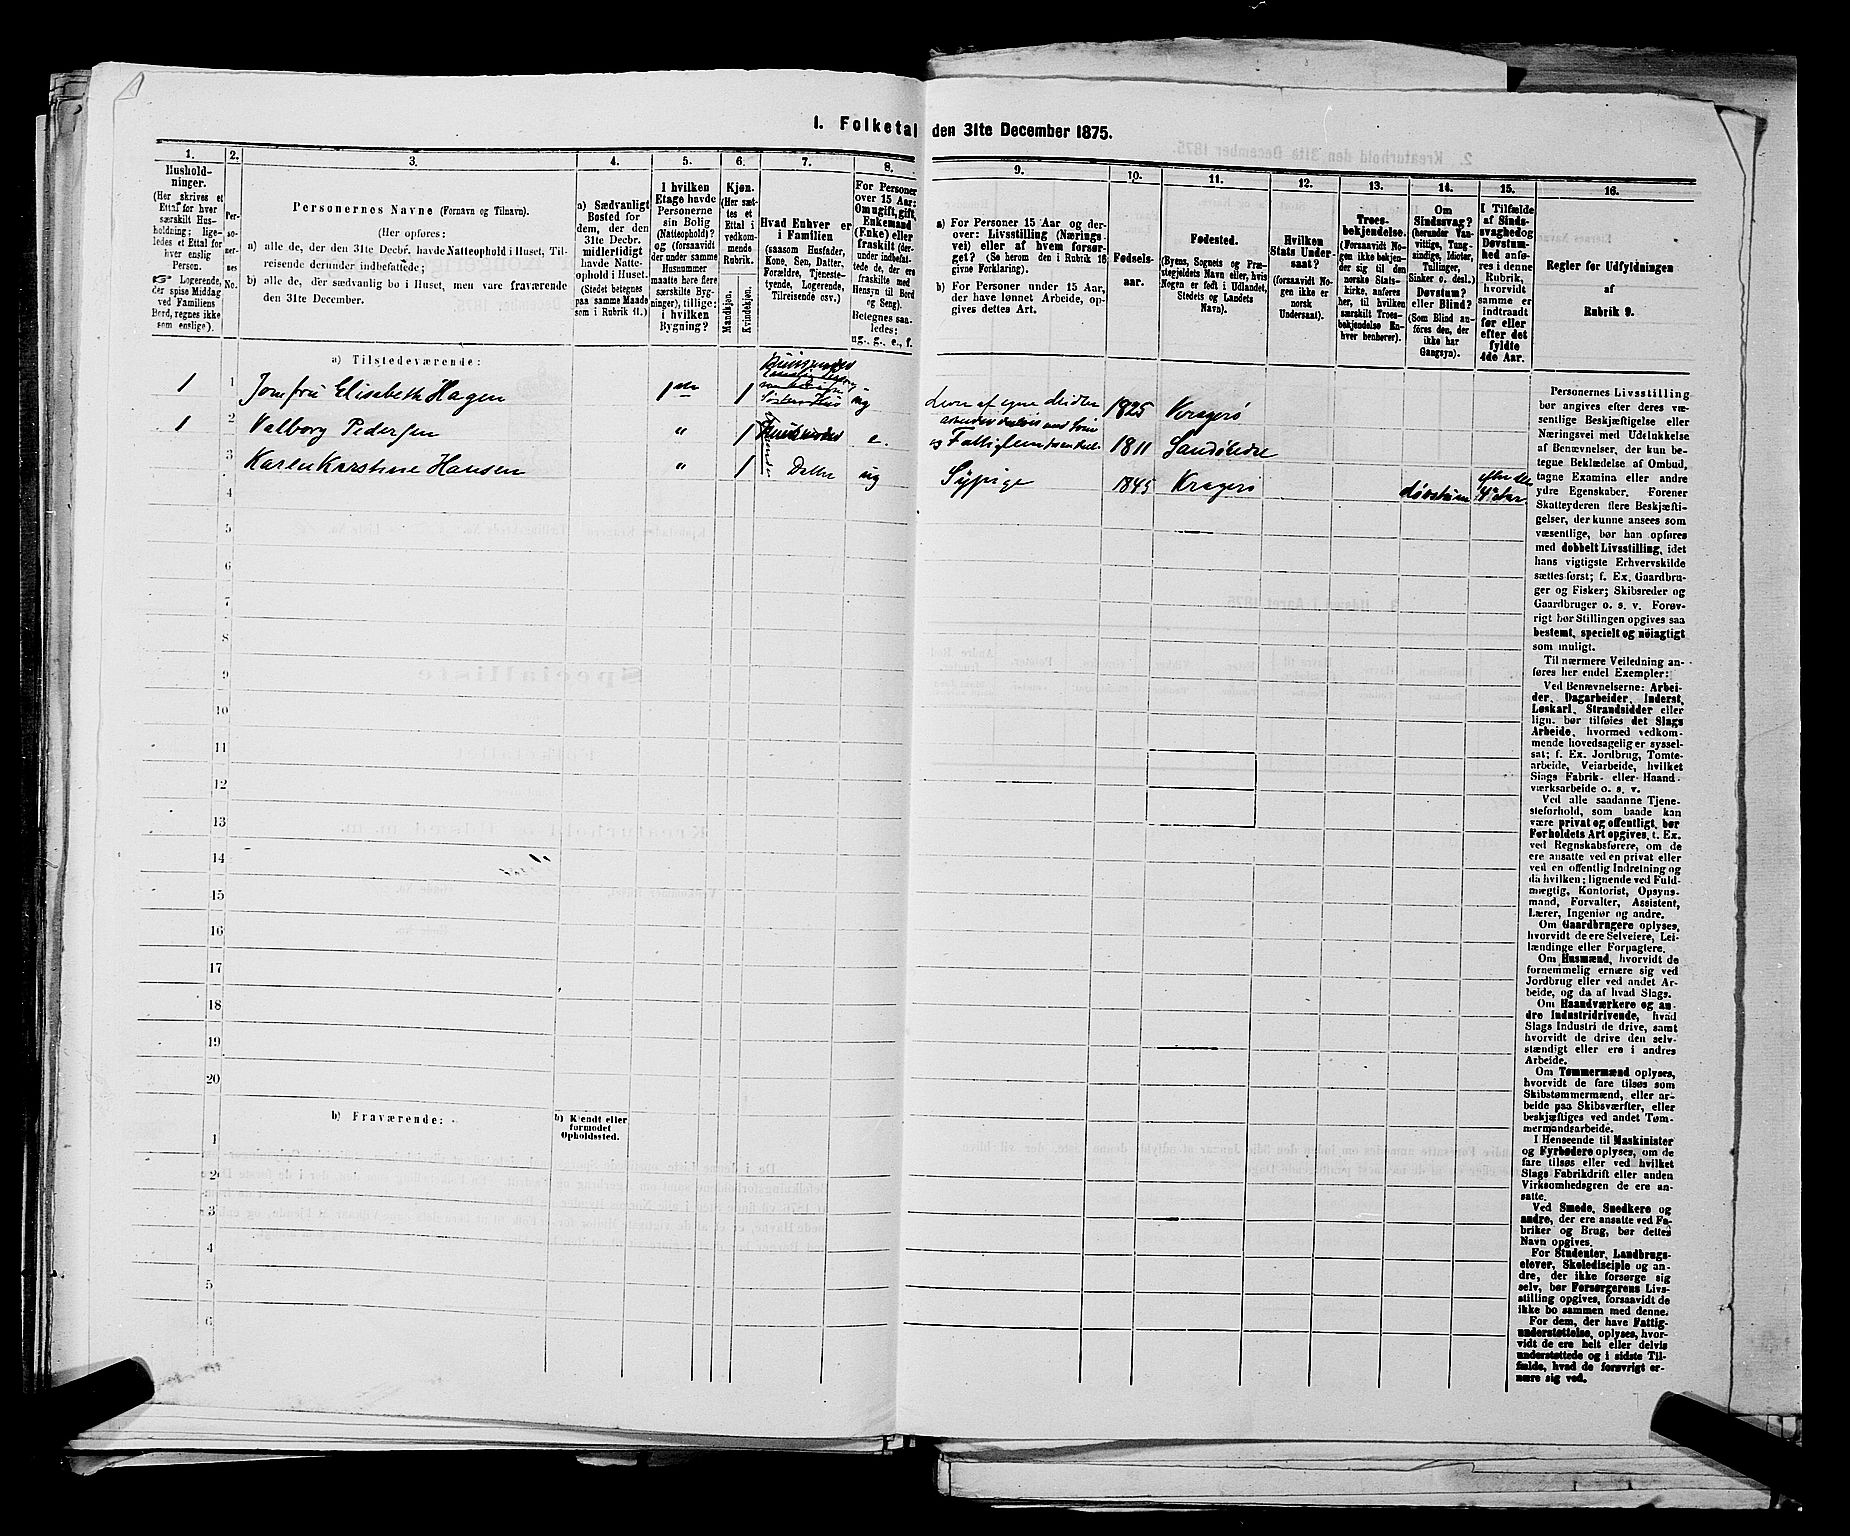 1. Folketal den 31te December 1875.
1.
Hushold-
ninger.
(Her skrives et
Ettal for hver
særskilt Hus-
holdning; lige-
ledes et Ettal for
hver enslig
Person.
Logerende,
der spise Middag
ved Familiens
Bord, regnes ikke
som enslige).
2.
Per-
so-
ner-
nes
No.
3.
Personernes Navne (Fornavn og Tilnavn).
(Her opføres:
a) alle de, der den 31te Decbr. havde Natteophold i Huset, Til-
reisende derunder indbefattede;
b) alle de, der sædvanlig bo i Huset, men vare fraværende
den 31te December.
4.
a) Sædvanligt
Bosted for
dem, der den
31te Decbr.
midlertidigt
havde Natte-
ophold i Huset.
(Stedet betegnes
paa samme Maade
som i Rubrik 11.)
5.
I hvilken
Etage havde
Personerne
sin Bolig
(Natteophold)?
og (forsaavidt
der under samme
Husnummer
maatte høre flere
særskilte Byg-
ninger), tillige:
i hvilken
Bygning?
6.
Kjøn.
(Her sæt-
tes et
Ettal i
vedkom-
mende
Rubrik.
Mandkjøn.
Kvindekjøn.
7.
Hvad Enhver er
i Familien
(saasom Husfader,
Kone, Søn, Datter,
Forældre, Tjeneste-
tyende, Logerende,
Tilreisende osv.)
8.
For Personer
over 15 Aar:
Om ugift, gift,
Enkemand
(Enke) eller
fraskilt (der-
under indbefat-
tede de, der ere
fraskilte med
Hensyn til Bord
og Seng).
Betegnes saa-
ledes:
ug., g., e., f.
9.
a) For Personer 15 Aar og der-
over: Livsstilling (Nærings-
vei) eller af hvem forsør-
get? (Se herom den i Rubrik 16
givne Forklaring).
b) For Personer under 15 Aar,
der have lønnet Arbeide, op-
gives dettes Art.
10.
Fødsels-
aar.
11.
Fødested.
(Byens, Sognets og Præ-
stegjeldets Navn eller, hvis
Nogen er født i Udlandet,
Stedets og Landets
Navn).
12.
Hvilken
Stats Under-
saat?
(forsaavidt No-
gen ikke er
norsk
Undersaat).
13.
Troes-
bekjendelse.
(Forsaavidt No-
gen ikke bekjen-
der sig til den
norske Stats-
kirke, anføres
her, til hvilken
særskilt Troes-
bekjendelse En-
hver henhører).
14.
Om
Sindssvag?
(herunder Van-
vittige, Tung-
sindige, Idioter,
Tullinger,
Sinker o. desl.)
Døvstum?
eller Blind?
(Som Blind an-
føres den, der
ikke har
Gangsyn).
15.
I Tilfælde
af Sinds-
svaghed og
Døvstum-
hed anfø-
res i denne
Rubrik,
hvorvidt
samme er
indtraadt
før eller
efter det
fyldte
4de Aar.
16.
Regler for Udfyldningen
af
Rubrik 9.
a) Tilstedeværende:
1 1 Jomfru Elisabeth Hagen 1 ug Lever af egne Midler 1825 Kragerø
1 2 Valborg Pedersen " 1 e. Fattig 1811 Sandøkedal
3 Karen Kirstine Hansen " 1 Datter ug Sypige 1845 Kragerø døvstum
4
5
6
7
8
9
10
11
12
13
14
15
16
17
18
19
20
b) Fraværende:
b) Kjendt eller
formodet
Opholdssted.
1
2
3
4
5
6
Personernes Livsstilling
bør angives efter deres væ-
sentlige Beskjæftigelse eller
Næringsvei med Udelukkelse
af Benævnelser, der kun be-
tegne Beklædelse af Ombud,
tagne Examina eller andre
ydre Egenskaber. Forener
Skatteyderen flere Beskjæfti-
gelser, der kunne ansees som
væsentlige, bør han opføres
med dobbelt Livsstilling, idet
hans vigtigste Erhvervskilde
sættes først; f. Ex. Gaardbru-
ger og Fisker; Skibsreder og
Gaardbruger o. s. v. Forøv-
rigt bør Stillingen opgives saa
bestemt, specielt og nöiagtigt
som muligt.
Til nærmere Veiledning an-
føres her endel Exempler:
Ved Benævnelserne: Arbei-
der, Dagarbeider, Inderst,
Løskarl, Strandsidder eller
lign. bør tilføies det Slags
Arbeide, hvormed vedkom-
mende hovedsagelig er syssel-
sat; f. Ex. Jordbrug, Tomte-
arbeide, Veiarbeide, hvilket
Slags Fabrik- eller Haand-
værksarbeide o. s. v.
Ved alle saadanne Tjene-
steforhold, som baade kan
være privat og offentligt, bør
Forholdets Art opgives, t. Ex.
ved Regnskabsførere, om de
ere ansatte ved en privat eller
ved en offentlig Indretning og
da hvilken; lignende ved Fuld-
mægtig, Kontorist, Opsyns-
mand, Forvalter, Assistent,
Lærer, Ingeniør og andre.
Om Gaardbrugere oplyses,
hvorvidt de ere Selveiere, Lei-
lændinge eller Forpagtere.
Om Husmænd, hvorvidt de
fornemmelig ernære sig ved
Jordbrug eller ved andet Ar-
beide, og da af hvad Slags.
Om Haandværkere og an-
dre Industridrivende, hvad
Slags Industri de drive, samt
hvorvidt de drive den selv-
stændigt eller ere i andres
Arbeide.
Om Tømmermænd oplyses,
hvorvidt de fare tilsøs som
Skibstømmermænd, eller ar-
beide paa Skibsværfter, eller
beskjæftiges ved andet Tøm-
mermandsarbeide.
I Henseende til Maskinister
og Fyrbødere oplyses, om de
fare tilsøs eller ved hvilket
Slags Fabrikdrift eller anden
Virksomhedsgren de ere an-
satte.
Ved Smede, Snedkere og
andre, der ere ansatte ved Fa-
briker og Brug, bør dettes
Navn opgives.
For Studenter, Landbrugs-
elever, Skoledisciple og an-
dre, der ikke forsørge sig
selv, bør Forsørgerens Livs-
stilling opgives, forsaavidt de
ikke bo sammen med denne.
For dem, der have Fattig-
understøttelse, oplyses, hvor-
vidt de ere helt eller delvis
understøttede og i sidste Til-
fælde, hvad de forøvrigt er-
nære sig ved.